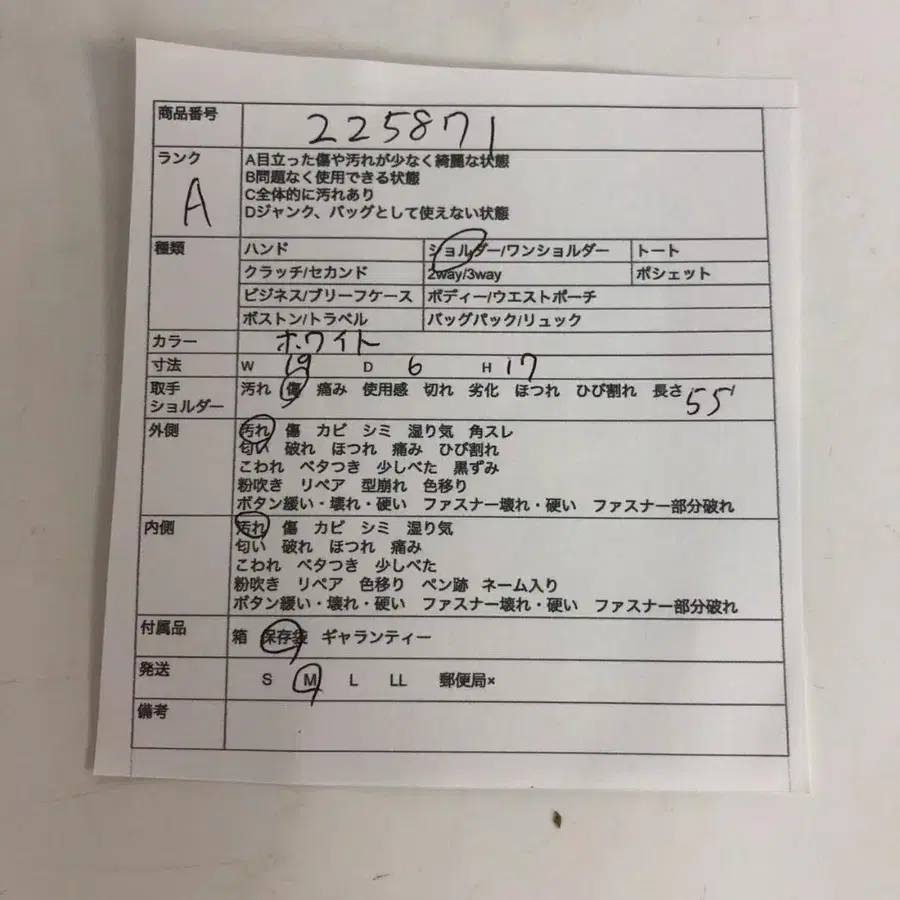 商品番号 225871
ランク A
A目立った傷や汚れが少なく綺麗な状態
B問題なく使用できる状態
C全体的に汚れあり
Dジャンク、バッグとして使えない状態
種類 ハンド ショルダー/ワンショルダー トート
クラッチ/セカンド 2way/3way ポシェット
ビジネス/ブリーフケース ボディー/ウエストポーチ
ボストン/トラベル バッグパック/リュック
カラー ホワイト
寸法 W 19 D 6 H 17
取手 汚れ 傷 痛み 使用感 切れ 劣化 ほつれ ひび割れ 長さ 55
ショルダー
外側 汚れ 傷 カビ シミ 湿り気 角スレ
匂い 破れ ほつれ 痛み ひび割れ
こわれ ベタつき 少しべた 黒ずみ
粉吹き リペア 型崩れ 色移り
ボタン緩い・壊れ・硬い ファスナー壊れ・硬い ファスナー部分破れ
内側 汚れ 傷 カビ シミ 湿り気
匂い 破れ ほつれ 痛み
こわれ ベタつき 少しべた
粉吹き リペア 色移り ペン跡 ネーム入り
ボタン緩い・壊れ・硬い ファスナー壊れ・硬い ファスナー部分破れ
付属品 箱 保存袋 ギャランティー
発送 S M L LL 郵便局×
備考